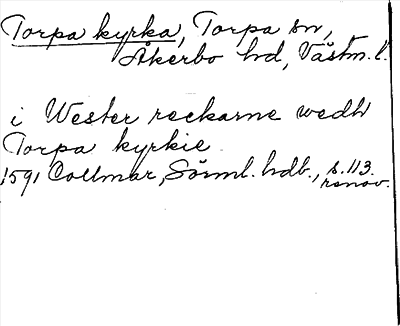 Torpa kyrka, Torpa sn,
Åkerbo hd, Västm. l.
i Wester reckarne wedh
Torpa kyrkie
1591 Collmar, Sörml. hdb., s. 113.
renov.